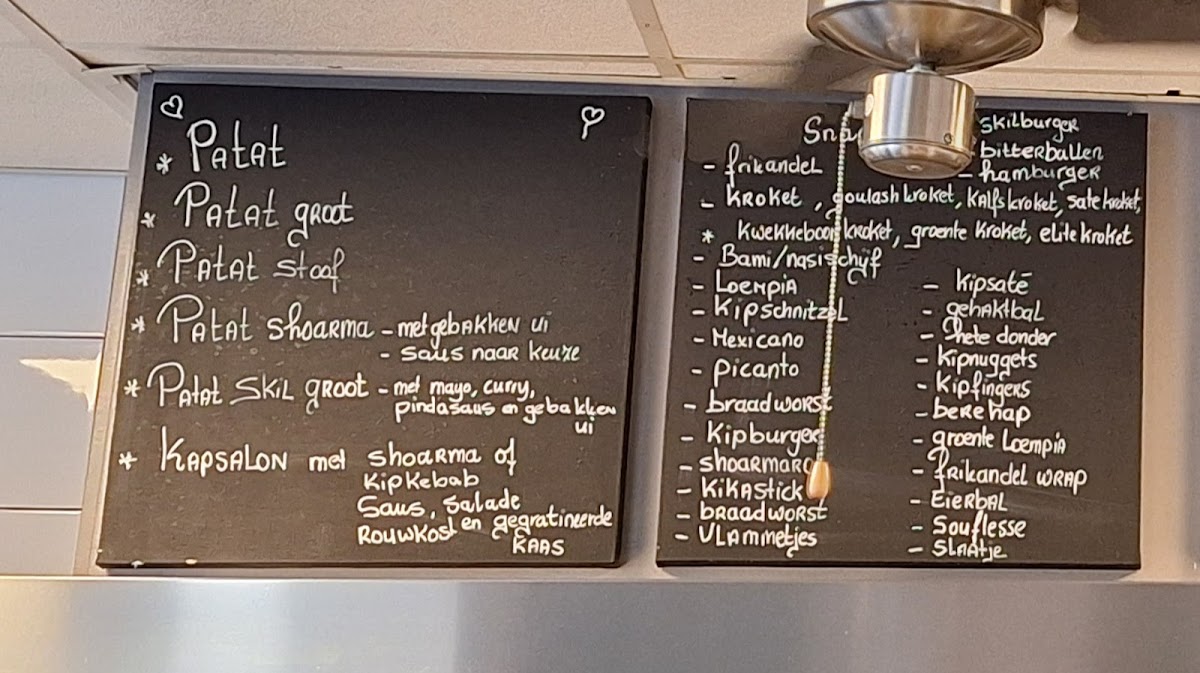 * Patat
* Patat groot
* Patat stoof
* Patat shoarma - met gebakken ui
- saus naar keuze
* Patat SKIL groot - met mayo, curry,
pindasaus en gebakken
ui
* Kapsalon met shoarma of
Kipkebab
Saus, Salade
Rouwkost en gegratineerde
Kaas
skilburger
bitterballen
- hamburger
- frikandel
- Kroket, goulash kroket, Kalfs kroket, sate kroket,
* Kwekkeboom kroket, groente kroket, elite kroket
- Bami/nasischijf
- Loempia
- Kipschnitzel
- Mexicano
- Picanto
- braadworst
- Kipburger
- Kikastick
- braadworst
- Vlammetjes
- Kipsaté
- gehaktbal
- hete donder
- Kipnuggets
- Kipfingers
- berehap
- groente Loempia
- frikandel wrap
- Eierbal
- Souflesse
- Slaatje